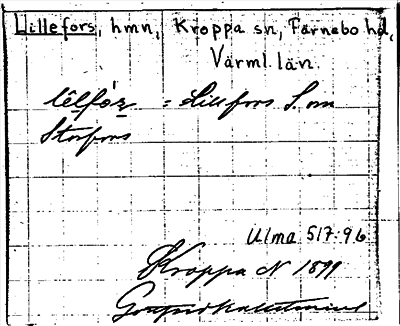 Lillefors, hmn, Kroppa sn, Färnebo hd,
Värml. län.
lêlfórs = Lillfors S. om
Storfors
Ulma 517:96
Kroppa N 1899